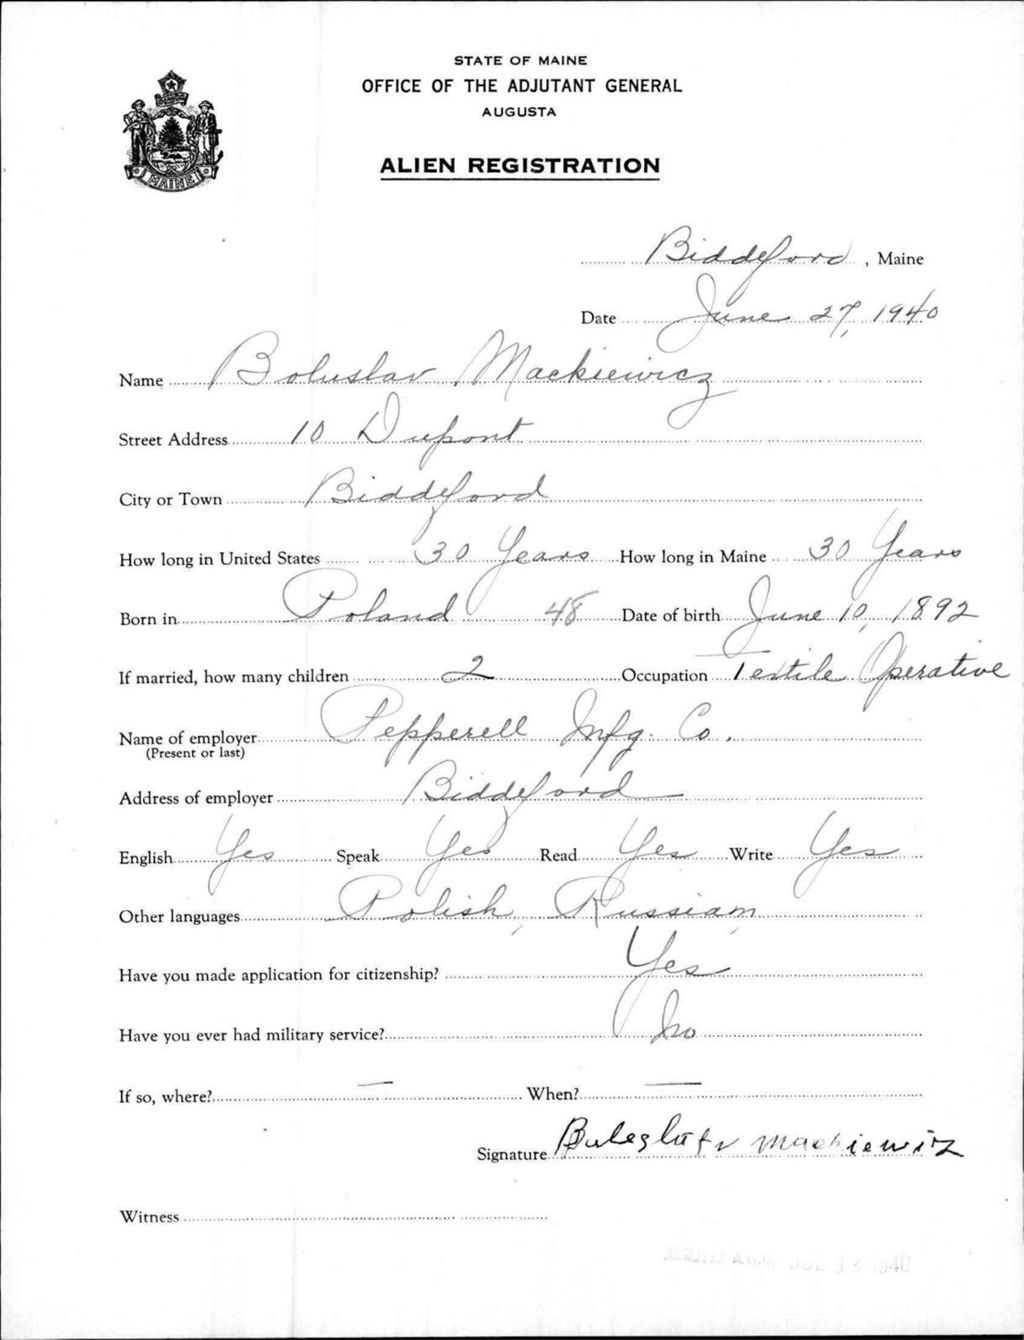 STATE OF MAINE
OFFICE OF THE ADJUTANT GENERAL
AUGUSTA
ALIEN REGISTRATION
MAINE
Biddeford, Maine
Date June 27, 1940
Name Boluslav Mackiewicz
Street Address 10 Dupont
City or Town Biddeford
How long in United States 30 Years How long in Maine 30 Years
Born in Poland 48 Date of birth June 10, 1892
If married, how many children 2 Occupation Textile Operative
Name of employer Pepperell Mfg. Co.
(Present or last)
Address of employer Biddeford
English Yes Speak Yes Read Yes Write Yes
Other languages Polish, Russian,
Have you made application for citizenship? Yes
Have you ever had military service? No
If so, where? — When? —
Signature Mackiewicz
Witness